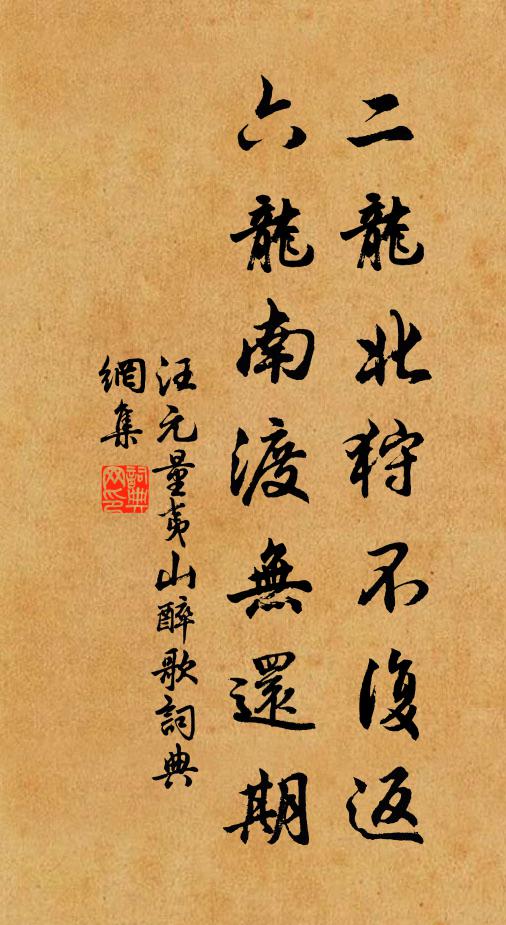 二龍北狩不復返
六龍南渡無還期
汪元量夷山醉歌詞典
網集
詞典網印